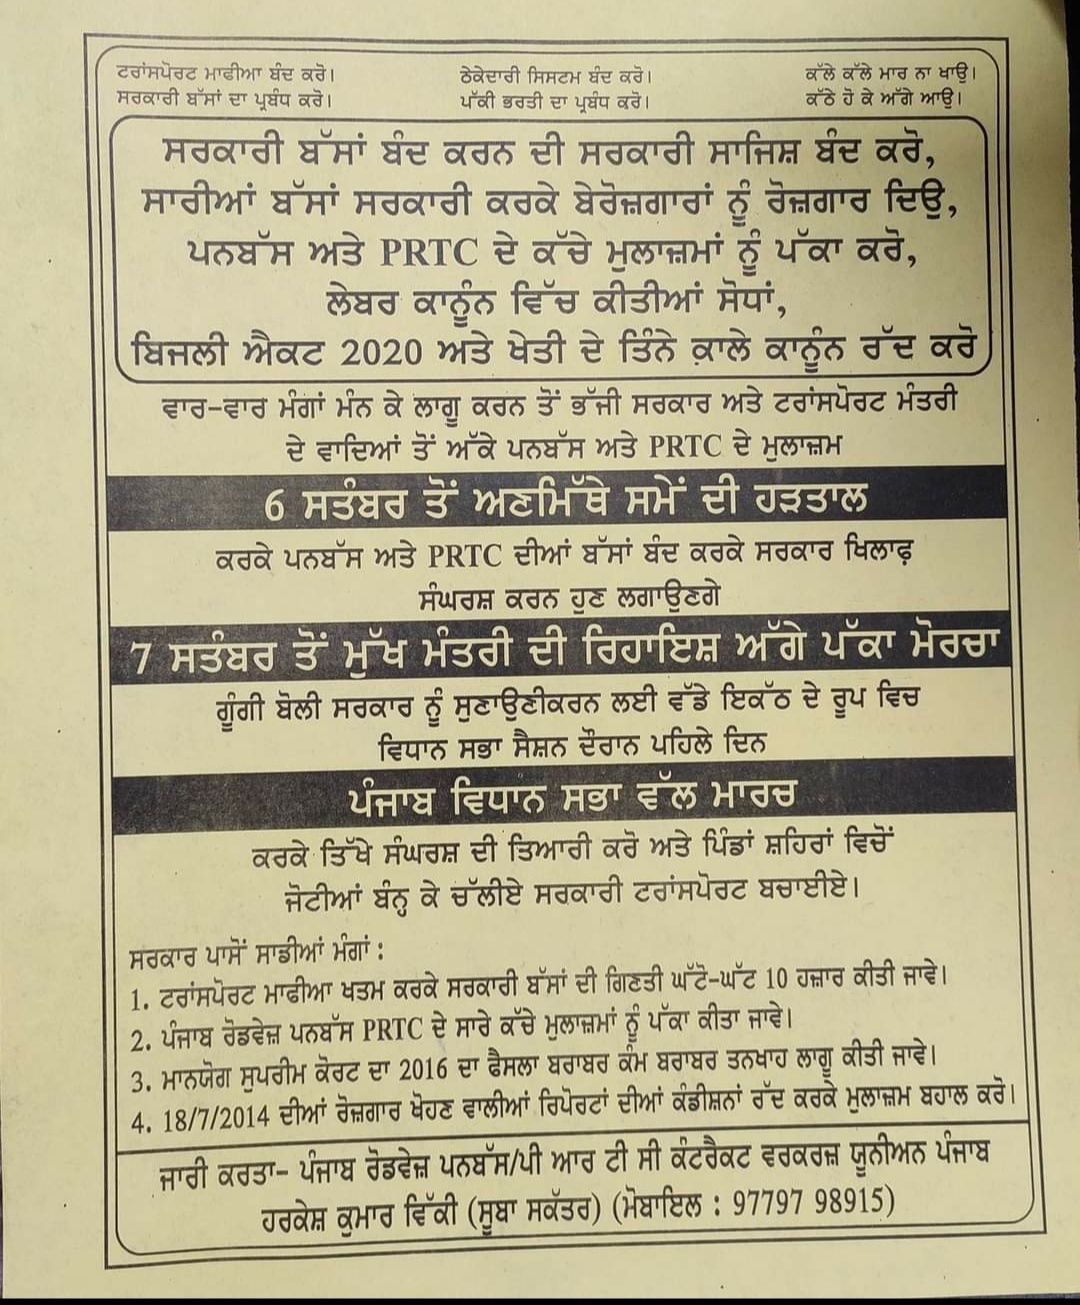 ਟਰਾਂਸਪੋਰਟ ਮਾਫੀਆ ਬੰਦ ਕਰੋ।
ਸਰਕਾਰੀ ਬੱਸਾਂ ਦਾ ਪ੍ਰਬੰਧ ਕਰੋ।
ਠੇਕੇਦਾਰੀ ਸਿਸਟਮ ਬੰਦ ਕਰੋ।
ਪੱਕੀ ਭਰਤੀ ਦਾ ਪ੍ਰਬੰਧ ਕਰੋ।
ਕੱਲੇ ਕੱਲੇ ਮਾਰ ਨਾ ਖਾਉ।
ਕੱਠੇ ਹੋ ਕੇ ਅੱਗੇ ਆਉ।
ਸਰਕਾਰੀ ਬੱਸਾਂ ਬੰਦ ਕਰਨ ਦੀ ਸਰਕਾਰੀ ਸਾਜਿਸ਼ ਬੰਦ ਕਰੋ,
ਸਾਰੀਆਂ ਬੱਸਾਂ ਸਰਕਾਰੀ ਕਰਕੇ ਬੇਰੋਜ਼ਗਾਰਾਂ ਨੂੰ ਰੋਜ਼ਗਾਰ ਦਿਉ,
ਪਨਬੱਸ ਅਤੇ PRTC ਦੇ ਕੱਚੇ ਮੁਲਾਜ਼ਮਾਂ ਨੂੰ ਪੱਕਾ ਕਰੋ,
ਲੇਬਰ ਕਾਨੂੰਨ ਵਿੱਚ ਕੀਤੀਆਂ ਸੋਧਾਂ,
ਬਿਜਲੀ ਐਕਟ 2020 ਅਤੇ ਖੇਤੀ ਦੇ ਤਿੰਨੇ ਕਾਲੇ ਕਾਨੂੰਨ ਰੱਦ ਕਰੋ
ਵਾਰ-ਵਾਰ ਮੰਗਾਂ ਮੰਨ ਕੇ ਲਾਗੂ ਕਰਨ ਤੋਂ ਭੱਜੀ ਸਰਕਾਰ ਅਤੇ ਟਰਾਂਸਪੋਰਟ ਮੰਤਰੀ
ਦੇ ਵਾਦਿਆਂ ਤੋਂ ਅੱਕੇ ਪਨਬੱਸ ਅਤੇ PRTC ਦੇ ਮੁਲਾਜ਼ਮ
6 ਸਤੰਬਰ ਤੋਂ ਅਣਮਿੱਥੇ ਸਮੇਂ ਦੀ ਹੜਤਾਲ
ਕਰਕੇ ਪਨਬੱਸ ਅਤੇ PRTC ਦੀਆਂ ਬੱਸਾਂ ਬੰਦ ਕਰਕੇ ਸਰਕਾਰ ਖਿਲਾਫ਼
ਸੰਘਰਸ਼ ਕਰਨ ਹੁਣ ਲਗਾਉਣਗੇ
7 ਸਤੰਬਰ ਤੋਂ ਮੁੱਖ ਮੰਤਰੀ ਦੀ ਰਿਹਾਇਸ਼ ਅੱਗੇ ਪੱਕਾ ਮੋਰਚਾ
ਗੂੰਗੀ ਬੋਲੀ ਸਰਕਾਰ ਨੂੰ ਸੁਣਾਉਣੀਕਰਨ ਲਈ ਵੱਡੇ ਇਕੱਠ ਦੇ ਰੂਪ ਵਿਚ
ਵਿਧਾਨ ਸਭਾ ਸੈਸ਼ਨ ਦੌਰਾਨ ਪਹਿਲੇ ਦਿਨ
ਪੰਜਾਬ ਵਿਧਾਨ ਸਭਾ ਵੱਲ ਮਾਰਚ
ਕਰਕੇ ਤਿੱਖੇ ਸੰਘਰਸ਼ ਦੀ ਤਿਆਰੀ ਕਰੋ ਅਤੇ ਪਿੰਡਾਂ ਸ਼ਹਿਰਾਂ ਵਿਚੋਂ
ਜੋਟੀਆਂ ਬੰਨ੍ਹ ਕੇ ਚੱਲੀਏ ਸਰਕਾਰੀ ਟਰਾਂਸਪੋਰਟ ਬਚਾਈਏ।
ਸਰਕਾਰ ਪਾਸੋਂ ਸਾਡੀਆਂ ਮੰਗਾਂ :
1. ਟਰਾਂਸਪੋਰਟ ਮਾਫੀਆ ਖਤਮ ਕਰਕੇ ਸਰਕਾਰੀ ਬੱਸਾਂ ਦੀ ਗਿਣਤੀ ਘੱਟੋ-ਘੱਟ 10 ਹਜ਼ਾਰ ਕੀਤੀ ਜਾਵੇ।
2. ਪੰਜਾਬ ਰੋਡਵੇਜ਼ ਪਨਬੱਸ PRTC ਦੇ ਸਾਰੇ ਕੱਚੇ ਮੁਲਾਜ਼ਮਾਂ ਨੂੰ ਪੱਕਾ ਕੀਤਾ ਜਾਵੇ।
3. ਮਾਨਯੋਗ ਸੁਪਰੀਮ ਕੋਰਟ ਦਾ 2016 ਦਾ ਫੈਸਲਾ ਬਰਾਬਰ ਕੰਮ ਬਰਾਬਰ ਤਨਖਾਹ ਲਾਗੂ ਕੀਤੀ ਜਾਵੇ।
4. 18/7/2014 ਦੀਆਂ ਰੋਜ਼ਗਾਰ ਖੋਹਣ ਵਾਲੀਆਂ ਰਿਪੋਰਟਾਂ ਦੀਆਂ ਕੰਡੀਸ਼ਨਾਂ ਰੱਦ ਕਰਕੇ ਮੁਲਾਜ਼ਮ ਬਹਾਲ ਕਰੋ।
ਜਾਰੀ ਕਰਤਾ- ਪੰਜਾਬ ਰੋਡਵੇਜ਼ ਪਨਬੱਸ/ਪੀ ਆਰ ਟੀ ਸੀ ਕੰਟਰੈਕਟ ਵਰਕਰਜ਼ ਯੂਨੀਅਨ ਪੰਜਾਬ
ਹਰਕੇਸ਼ ਕੁਮਾਰ ਵਿੱਕੀ (ਸੂਬਾ ਸਕੱਤਰ) (ਮੋਬਾਇਲ : 97797 98915)